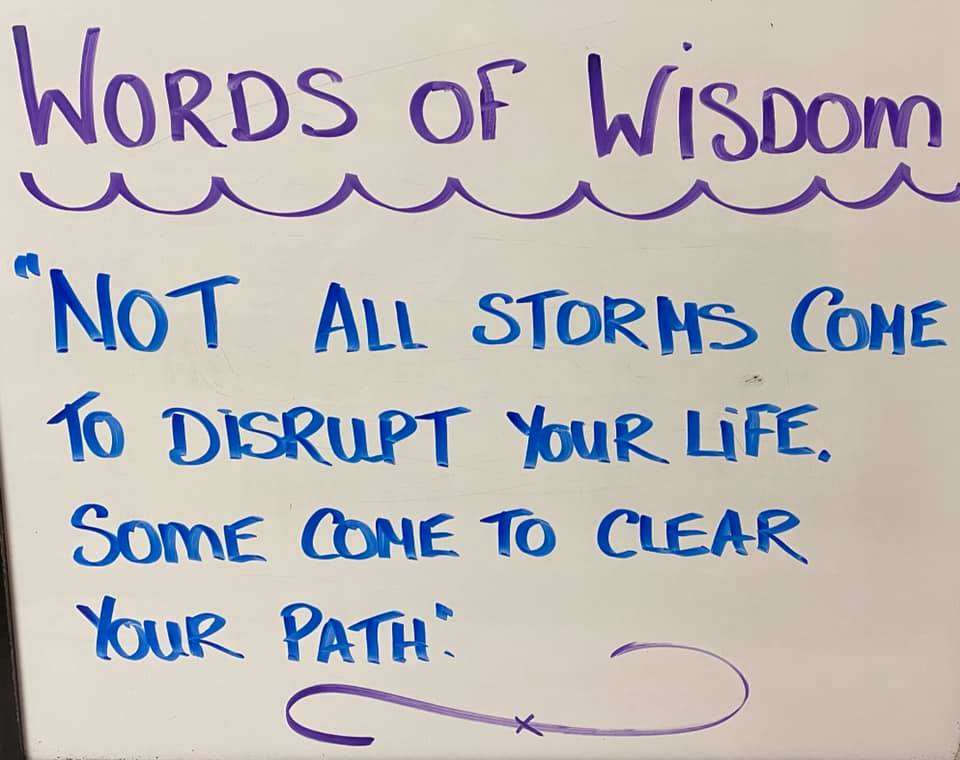 WORDS OF WISDOM
"NOT ALL STORMS COME
TO DISRUPT YOUR LIFE.
SOME COME TO CLEAR
YOUR PATH."